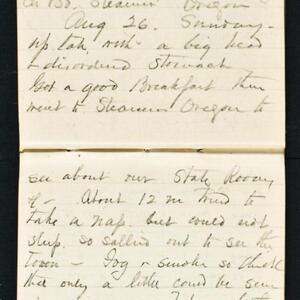 Steamer Oregon
Aug 26. Sunday -
up tak, with a big head
& disordered Stomach
Got a good Breakfast then
went to Steamer Oregon to
see about our State Room
& - About 12 m tried to
take a nap, but could not
sleep, so sallied out to see the
Town - Fog & smoke so thick
that only a little could be seen